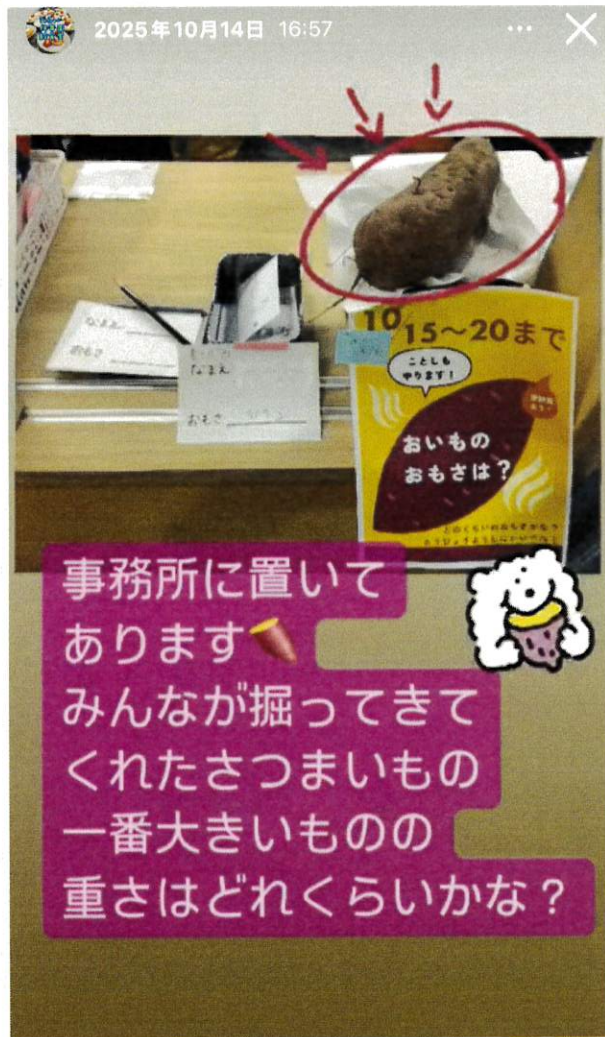 2025年10月14日 16:57
なまえ
おもさ
なまえ
おもさ
10/15〜20まで
ことしも
やります！
おいもの
おもさは？
どのくらいのおもさかな？
事務所に置いて
あります🍠
みんなが掘ってきて
くれたさつまいもの
一番大きいものの
重さはどれくらいかな？